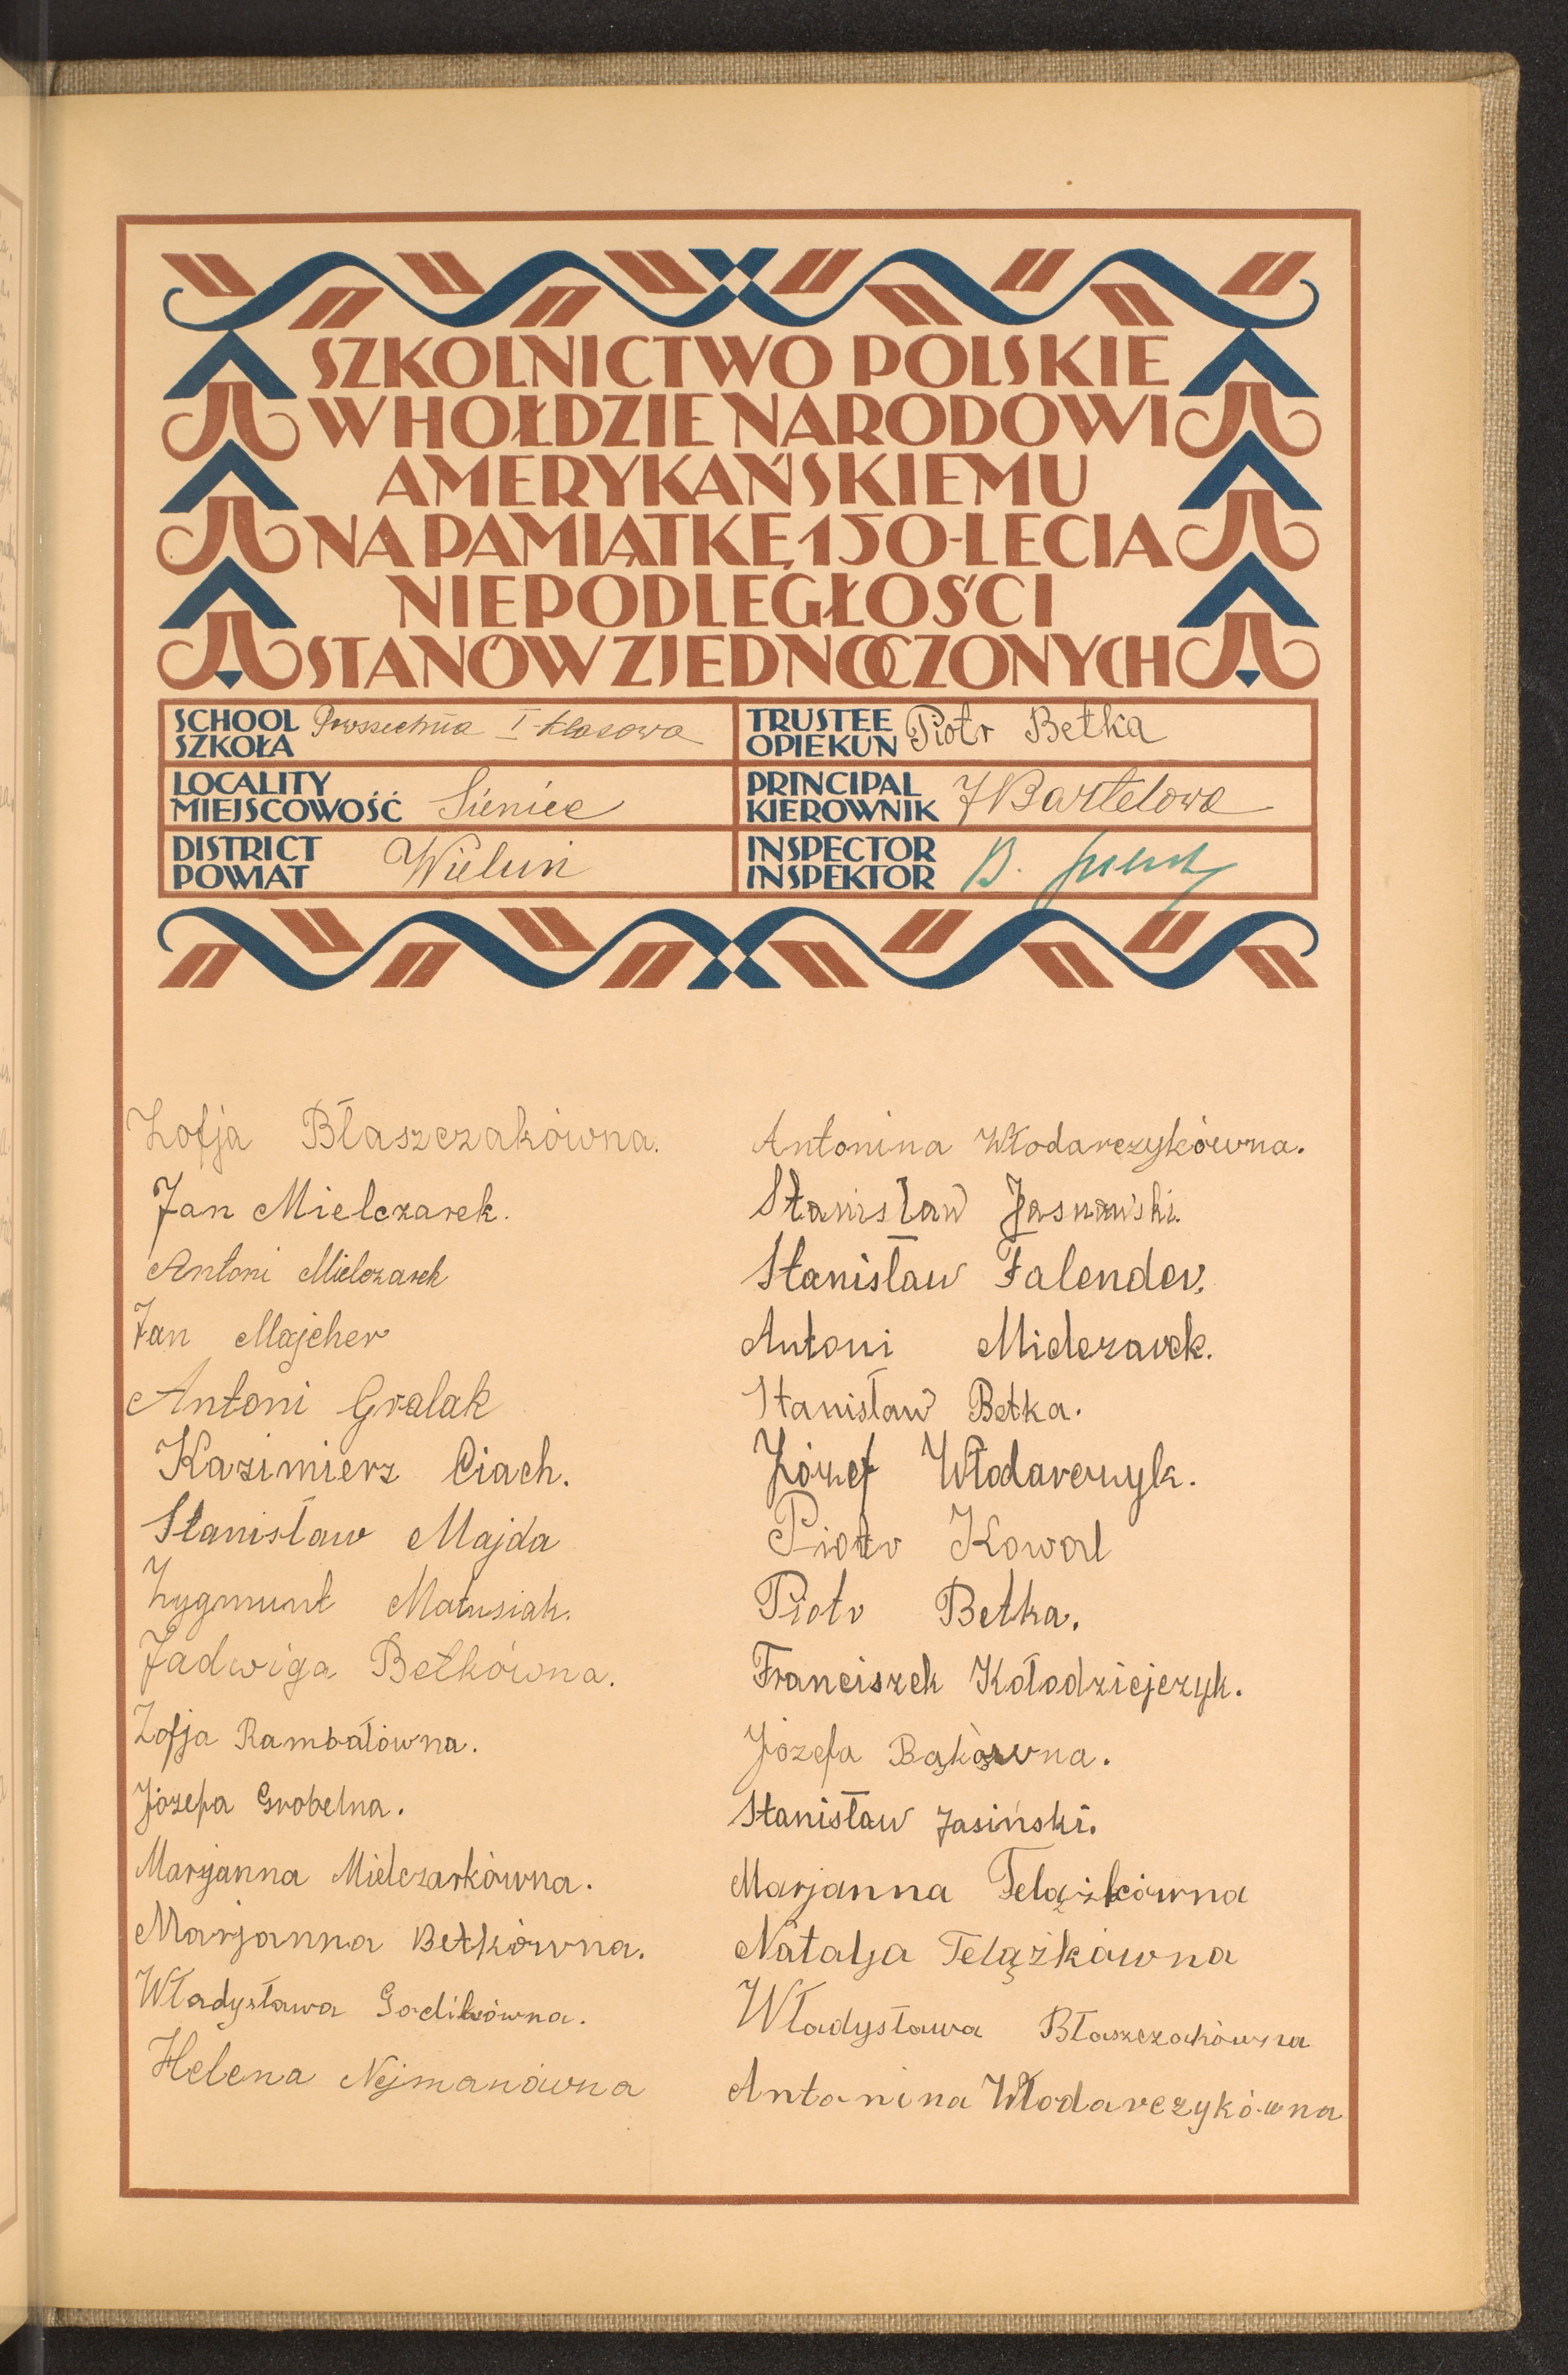 SZKOLNICTWO POLSKIE
W HOŁDZIE NARODOWI
AMERYKAŃSKIEMU
NA PAMIĄTKĘ 150-LECIA
NIEPODLEGŁOŚCI
STANÓW ZJEDNOCZONYCH
SCHOOL
SZKOŁA
Powszechna I-klasowa
TRUSTEE
OPIEKUN
Piotr Betka
LOCALITY
MIEJSCOWOŚĆ
Sieniec
PRINCIPAL
KIEROWNIK
J Bartelowa
DISTRICT
POWIAT
Wieluń
INSPECTOR
INSPEKTOR
B.
Zofja Błaszczakówna.
Jan Mielczarek.
Antoni Mielczarek
Jan Majcher
Antoni Gralak
Kazimierz Ciach.
Stanisław Majda
Zygmunt Matusiak.
Jadwiga Betkówna.
Zofja Rambałówna.
Józefa Grobelna.
Maryanna Mielczarkówna.
Marjanna Betkówna.
Władysława
Helena Nejmanówna
Antonina Włodarczykówna.
Stanisław
Stanisław Falender.
Antoni Mielczarek.
Stanisław Betka.
Józef Włodarczyk.
Piotr Kowal
Piotr Betka.
Franciszek Kołodziejczyk.
Józefa Bąkówna.
Stanisław Jasiński.
Marjanna Telążkówna
Natalja Telążkówna
Władysława Błaszczakówna
Antonina Włodarczykówna